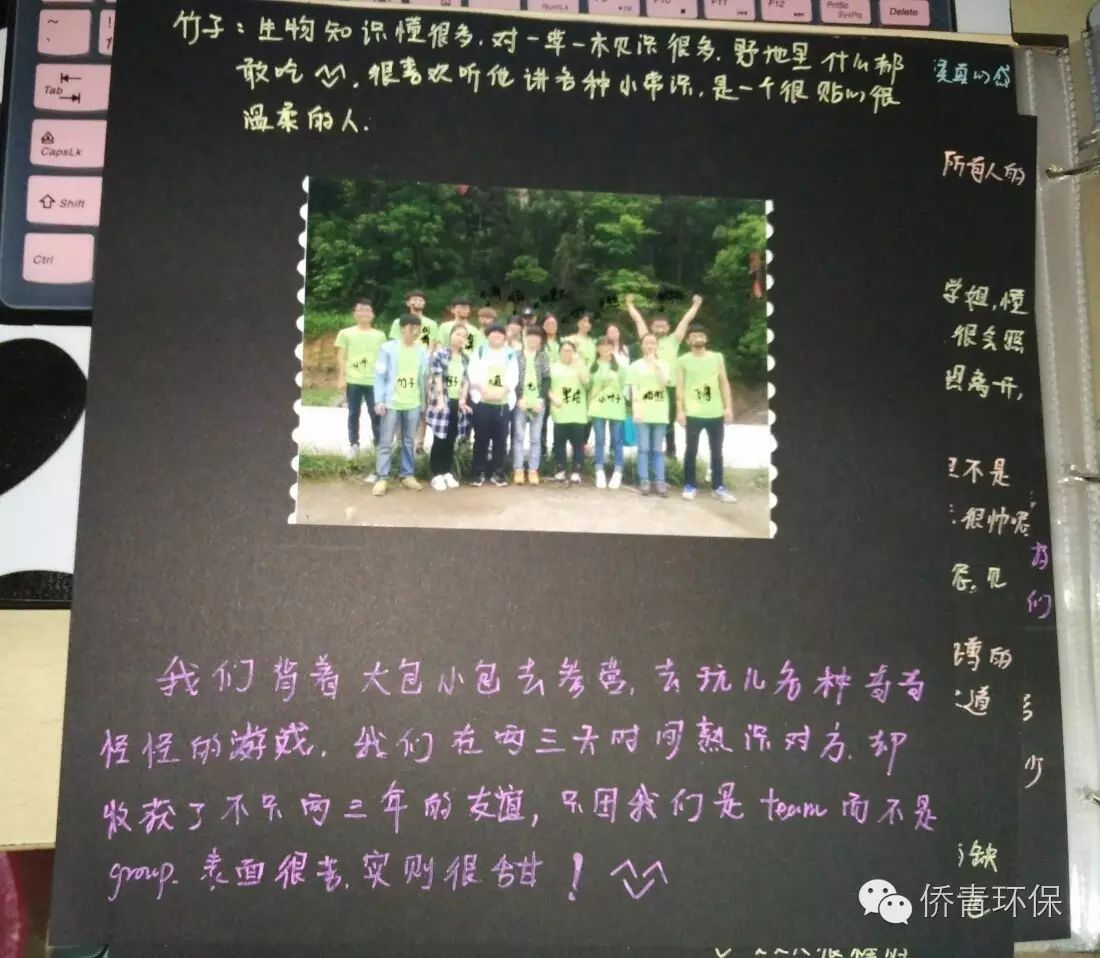 竹子：生物知识懂很多，对一草一木见识很多，野地里什么都
敢吃，很喜欢听他讲各种小常识，是一个很贴心很
温柔的人.
我们背着大包小包去参营，去玩儿各种奇奇
怪怪的游戏，我们在两三天时间熟识对方，却
收获了不只两三年的友谊，只因我们是team而不是
group. 表面很苦，实则很甜！
所有人的
学姐，懂
很会照
离开，
不是
很帅呢
们
的
缺
竹子
小竹子
Tab
CapsLk
Shift
Ctrl
NumLk
F10
F11
F12
PrtSc
SysRq
Delete
侨青环保